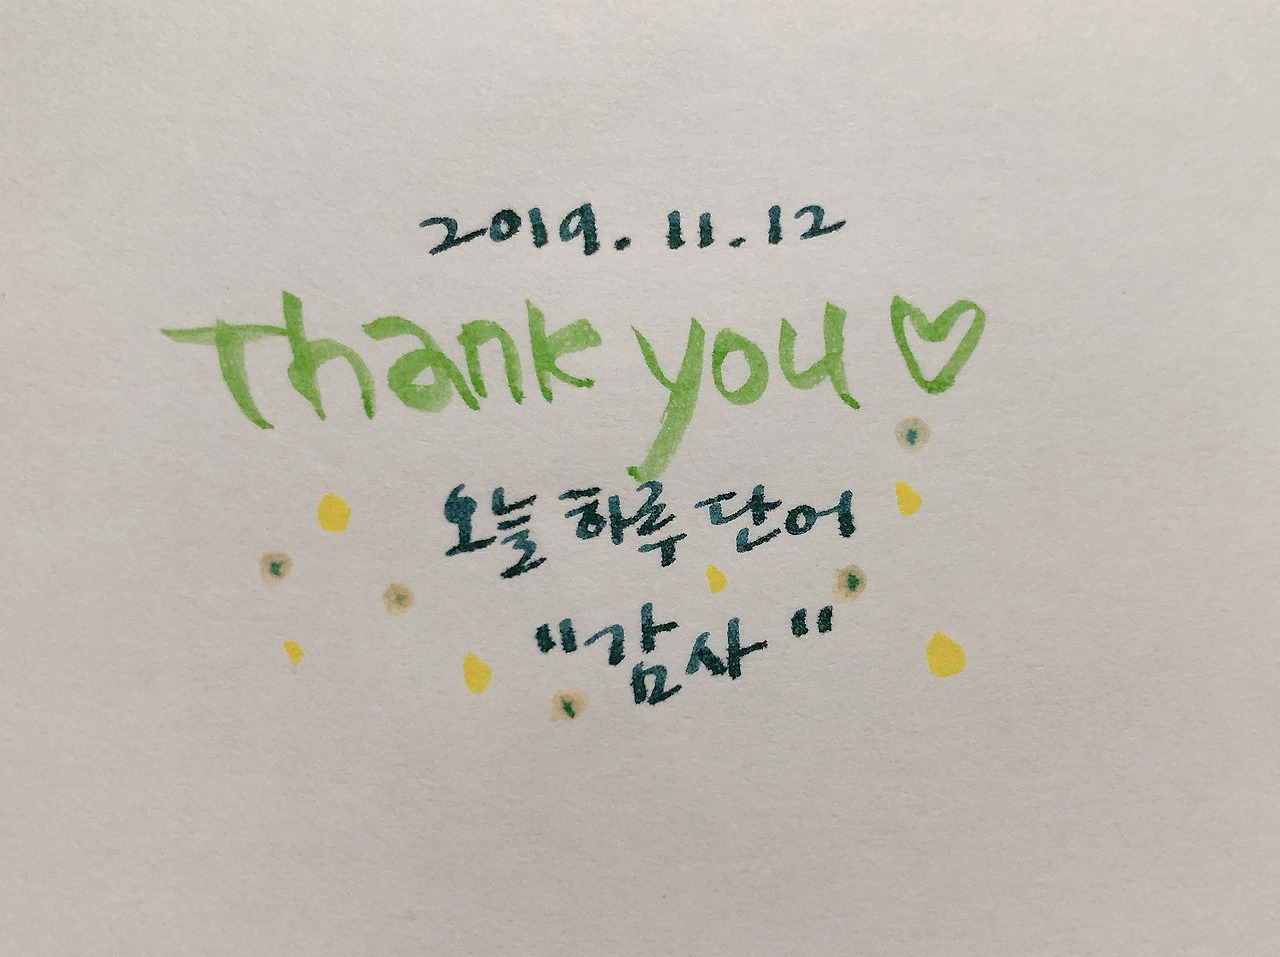 2019. 11. 12
Thank you ♡
오늘 하루 단어
"감사"